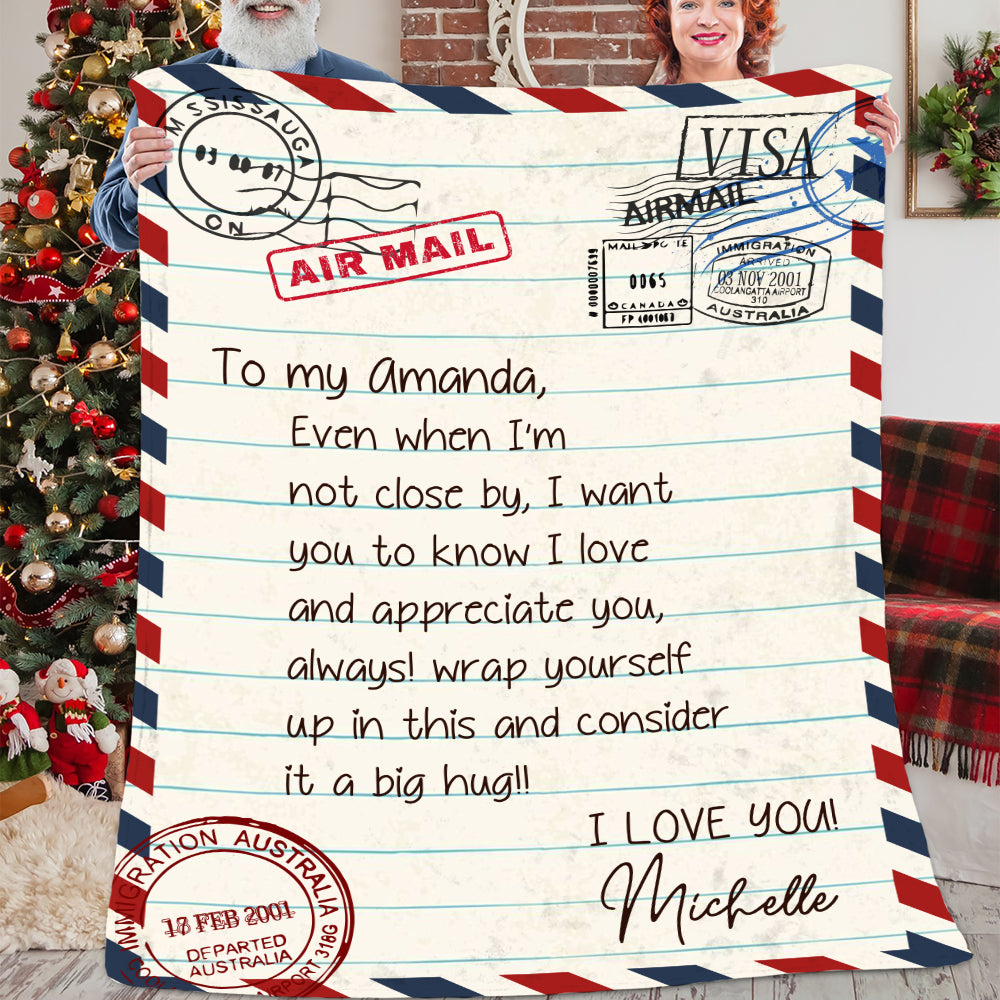 MISSISSAUGA
03 00 07
ON
AIR MAIL
VISA
AIRMAIL
MAIL
0065
CANADA
IMMIGRATION
ARRIVED
03 NOV 2001
COOLANGATTA AIRPORT
310
AUSTRALIA
To my Amanda,
Even when I'm
not close by, I want
you to know I love
and appreciate you,
always! wrap yourself
up in this and consider
it a big hug!!
I LOVE YOU!
Michelle
IMMIGRATION AUSTRALIA
17 FEB 2001
DEPARTED
AUSTRALIA
318G